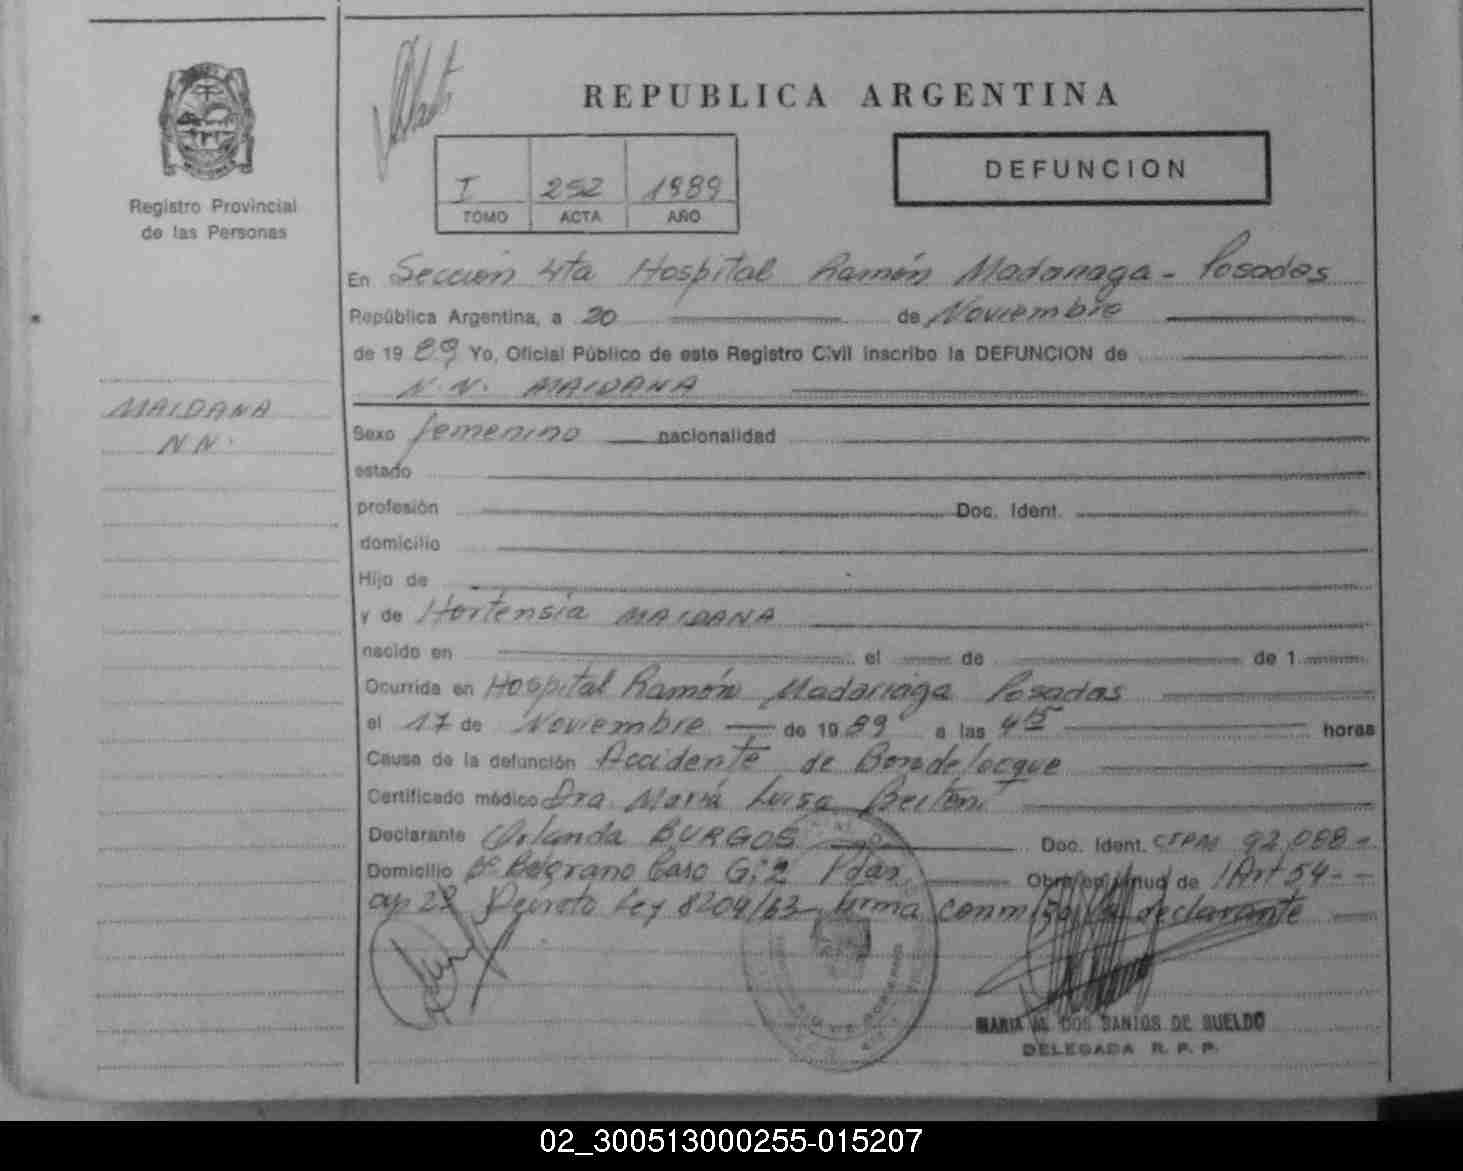 REPUBLICA ARGENTINA
DEFUNCION
I 252 1989
TOMO ACTA AÑO
Registro Provincial
de las Personas
MAIDANA
N N.
En Sección 4ta Hospital Ramón Madariaga - Posadas
República Argentina, a 20 de Noviembre
de 19 89 Yo, Oficial Público de este Registro Civil inscribo la DEFUNCION de
N. N. MAIDANA
Sexo femenino nacionalidad
estado
profesión Doc. Ident.
domicilio
Hijo de
y de Hortensia MAIDANA
nacido en el de de 1
Ocurrida en Hospital Ramón Madariaga Posadas
el 17 de Noviembre de 19 89 a las 4 15 horas
Causa de la defunción Accidente de
Certificado médico Dra. María Luisa
Declarante Orlanda BURGOS Doc. Ident. 92,088
Domicilio Bº Belgrano Casa G: 2 Pdas Obra en virtud de Art 54 - -
Decreto Ley 8204/63 firma conmigo declarante
MARIA M. DOS SANTOS DE SUELDO
DELEGADA R. P. P.
02_300513000255-015207